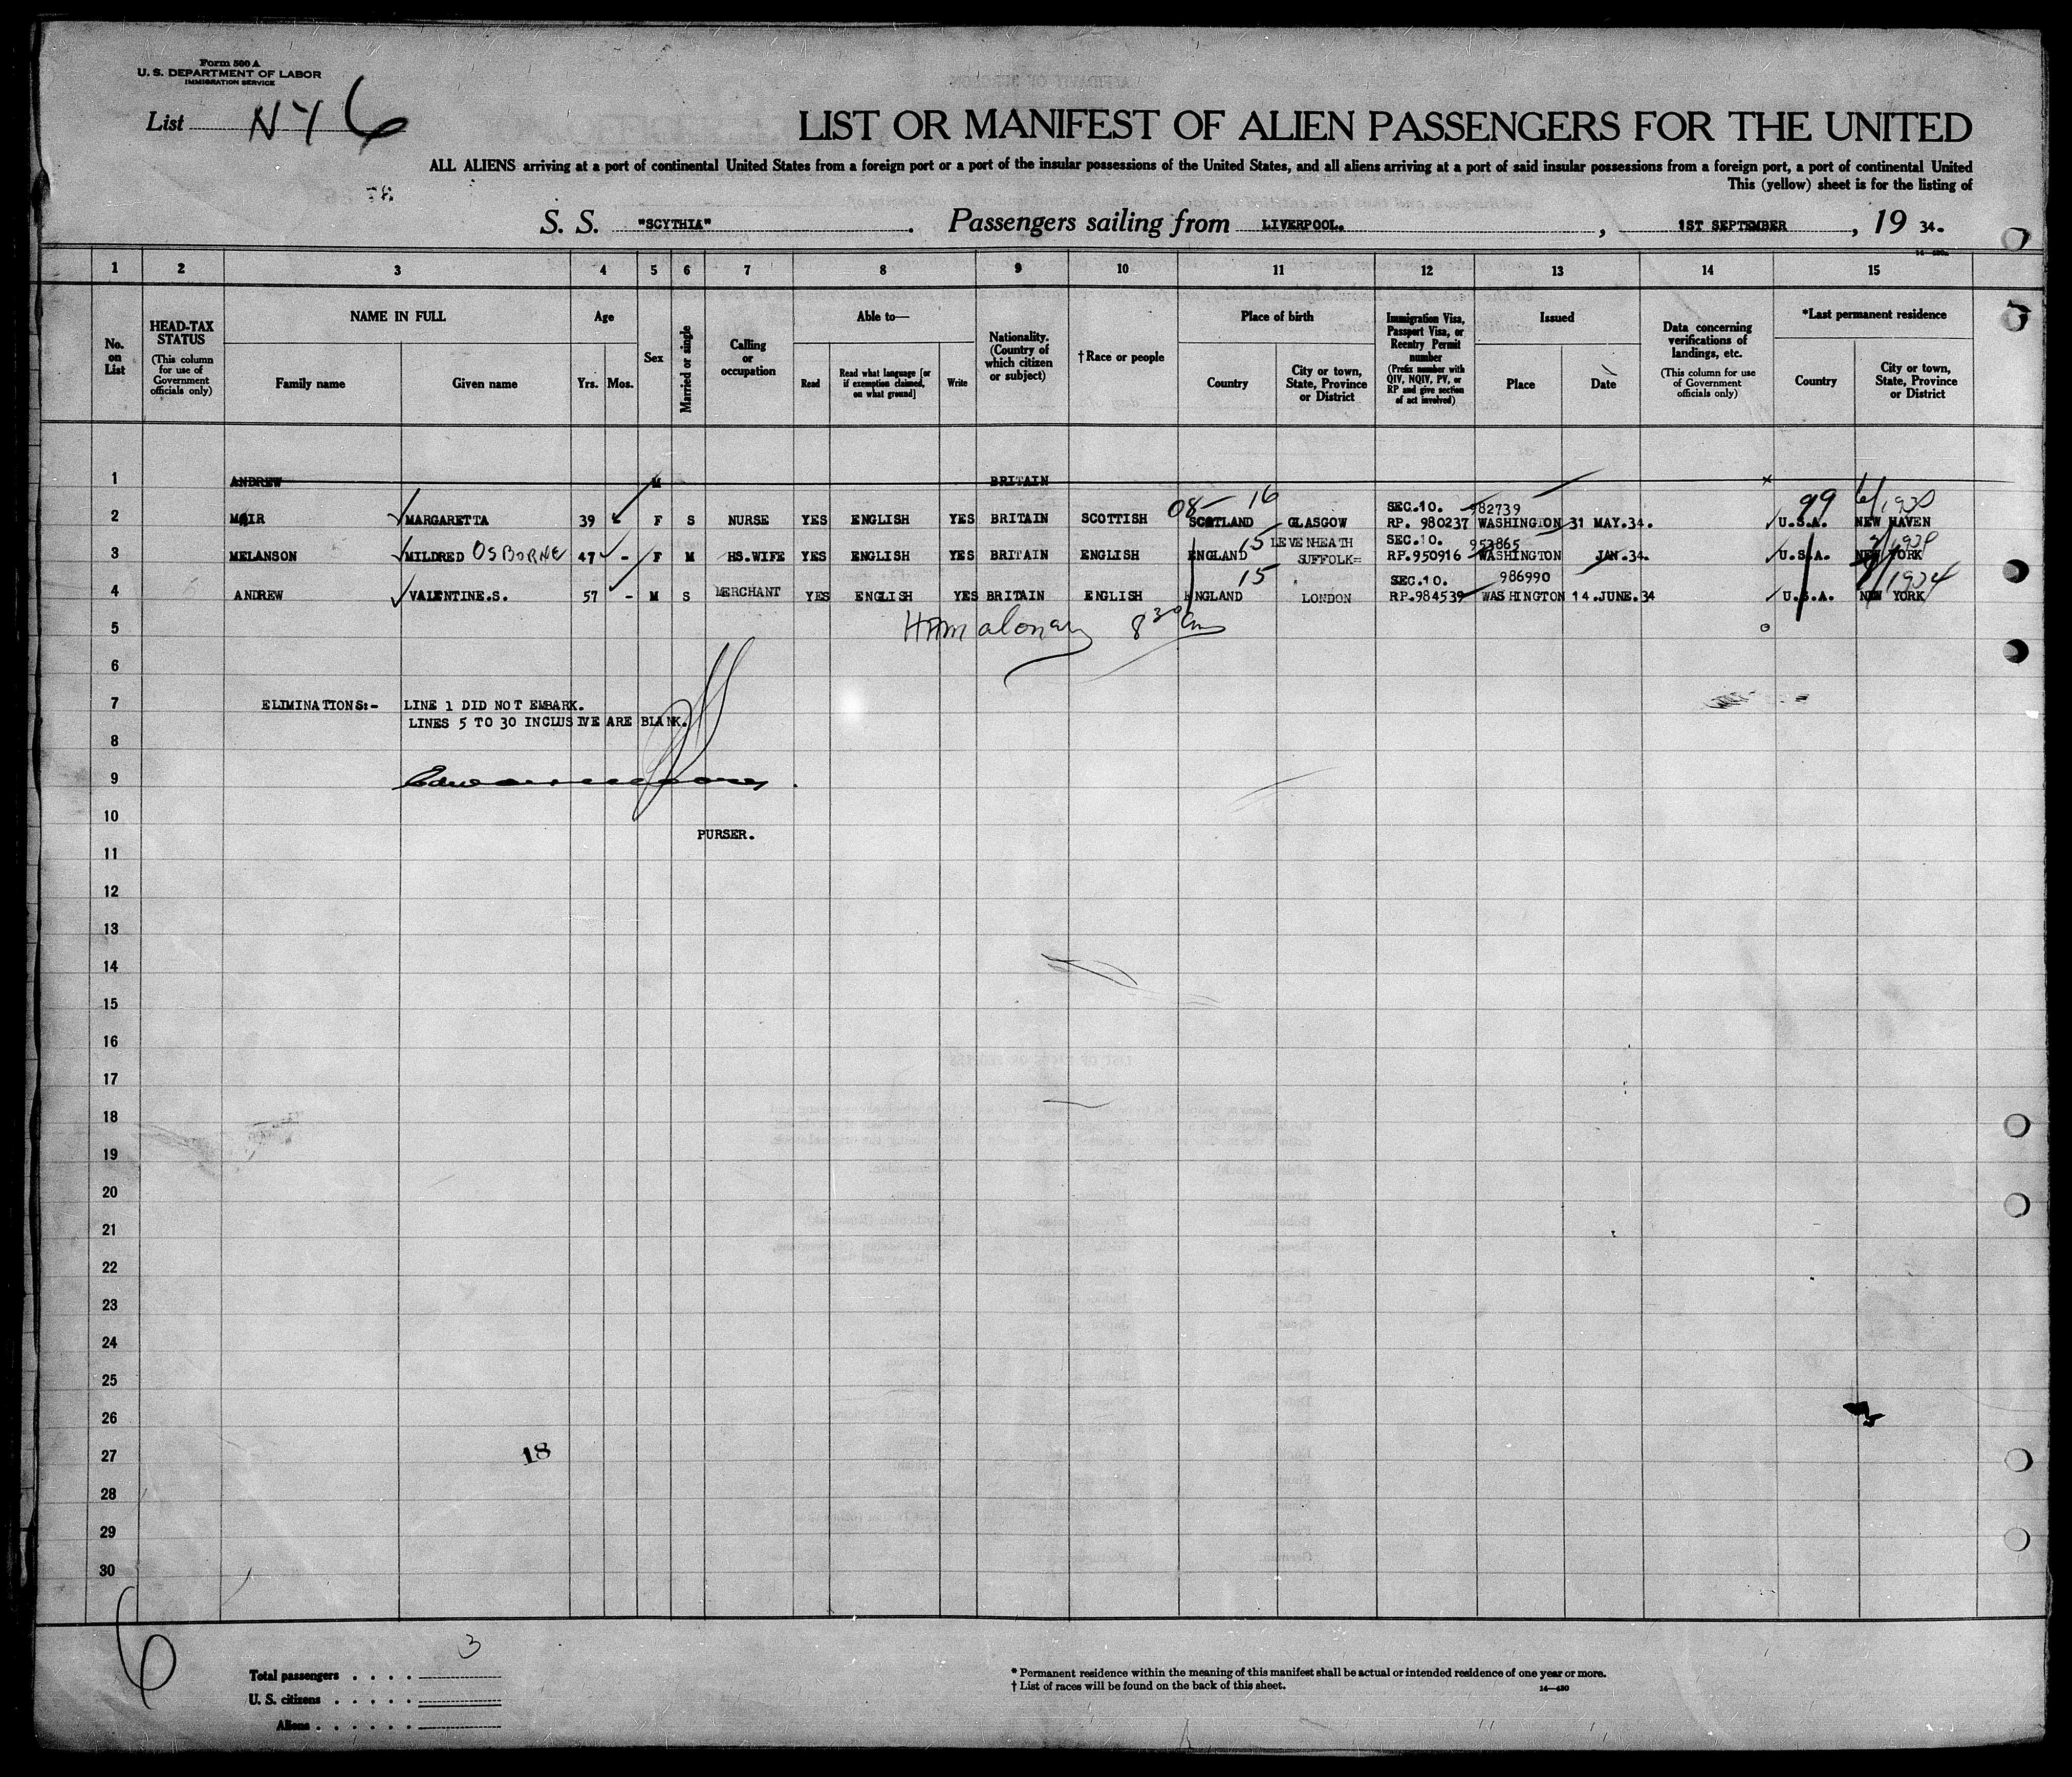 Form 500 A
U. S. DEPARTMENT OF LABOR
IMMIGRATION SERVICE
List NY 6
LIST OR MANIFEST OF ALIEN PASSENGERS FOR THE UNITED
ALL ALIENS arriving at a port of continental United States from a foreign port or a port of the insular possessions of the United States, and all aliens arriving at a port of said insular possessions from a foreign port, a port of continental United
This (yellow) sheet is for the listing of
S. S. "SCYTHIA" . Passengers sailing from LIVERPOOL. , 1ST SEPTEMBER , 19 34.
1 2 3 4 5 6 7 8 9 10 11 12 13 14 15
No. on List
HEAD-TAX STATUS (This column for use of Government officials only)
NAME IN FULL
Family name Given name
Age
Yrs. Mos.
Sex
Married or single
Calling or occupation
Able to—
Read Read what language [or if exemption claimed, on what ground] Write
Nationality. (Country of which citizen or subject)
†Race or people
Place of birth
Country City or town, State, Province or District
Immigration Visa, Passport Visa, or Reentry Permit number (Prefix number with QIV, NQIV, PV, or RP and give section of act involved)
Issued
Place Date
Data concerning verifications of landings, etc. (This column for use of Government officials only)
*Last permanent residence
Country City or town, State, Province or District
1 ANDREW M BRITAIN x
08- 16 SEC.10. 982739 99 6/1930
2 MAIR MARGARETTA 39 F S NURSE YES ENGLISH YES BRITAIN SCOTTISH SCOTLAND GLASGOW RP. 980237 WASHINGTON 31 MAY.34. U.S.A. NEW HAVEN
15 LEVENHEATH SEC.10. 953865
3 MELANSON MILDRED OSBORNE 47 - F M HS.WIFE YES ENGLISH YES BRITAIN ENGLISH ENGLAND SUFFOLK= RP.950916 WASHINGTON JAN.34. U.S.A. NEW YORK
15 SEC.10. 986990 1924
4 ANDREW VALENTINE.S. 57 - M S MERCHANT YES ENGLISH YES BRITAIN ENGLISH ENGLAND LONDON RP.984539 WASHINGTON 14.JUNE.34 U.S.A. NEW YORK
5
6
7 ELIMINATIONS:- LINE 1 DID NOT EMBARK.
LINES 5 TO 30 INCLUSIVE ARE BLANK.
8
9
10
PURSER.
11
12
13
14
15
16
17
18
19
20
21
22
23
24
25
26
27 18
28
29
30
6
Total passengers . . . . 3
U. S. citizens . . . . .
Aliens . . . . . .
* Permanent residence within the meaning of this manifest shall be actual or intended residence of one year or more.
† List of races will be found on the back of this sheet. 14—430